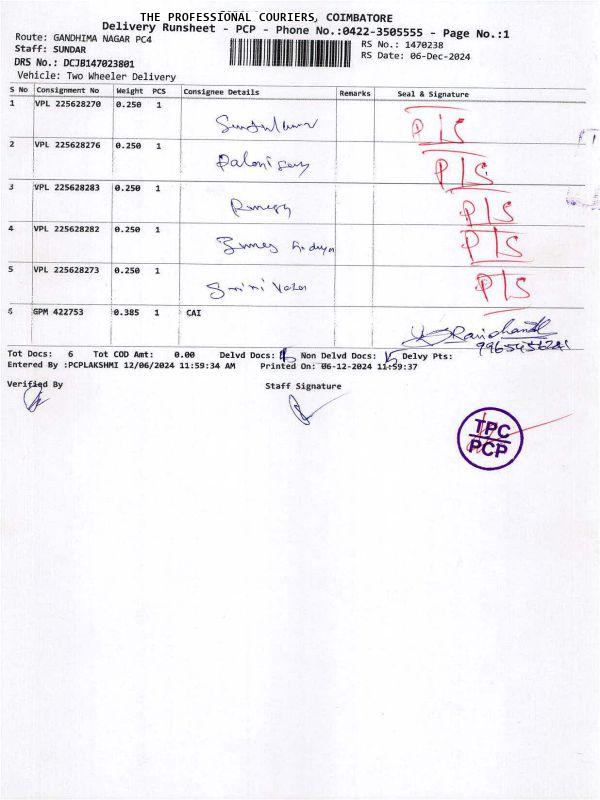 THE PROFESSIONAL COURIERS, COIMBATORE
Delivery Runsheet - PCP - Phone No.:0422-3505555 - Page No.:1
Route: GANDHIMA NAGAR PC4
RS No.: 1470238
Staff: SUNDAR
RS Date: 06-Dec-2024
DRS No.: DCJB147023801
Vehicle: Two Wheeler Delivery
S No Consignment No Weight PCS Consignee Details Remarks Seal & Signature
1 VPL 225628270 0.250 1 P/S
2 VPL 225628276 0.250 1 P/S
3 VPL 225628283 0.250 1 P/S
4 VPL 225628282 0.250 1 P/S
5 VPL 225628273 0.250 1 P/S
6 GPM 422753 0.385 1 CAI
Ravichand
Tot Docs: 6 Tot COD Amt: 0.00 Delvd Docs: Non Delvd Docs: Delvy Pts:
Entered By :PCPLAKSHMI 12/06/2024 11:59:34 AM Printed On: 06-12-2024 11:59:37
Verified By Staff Signature
TPC
PCP